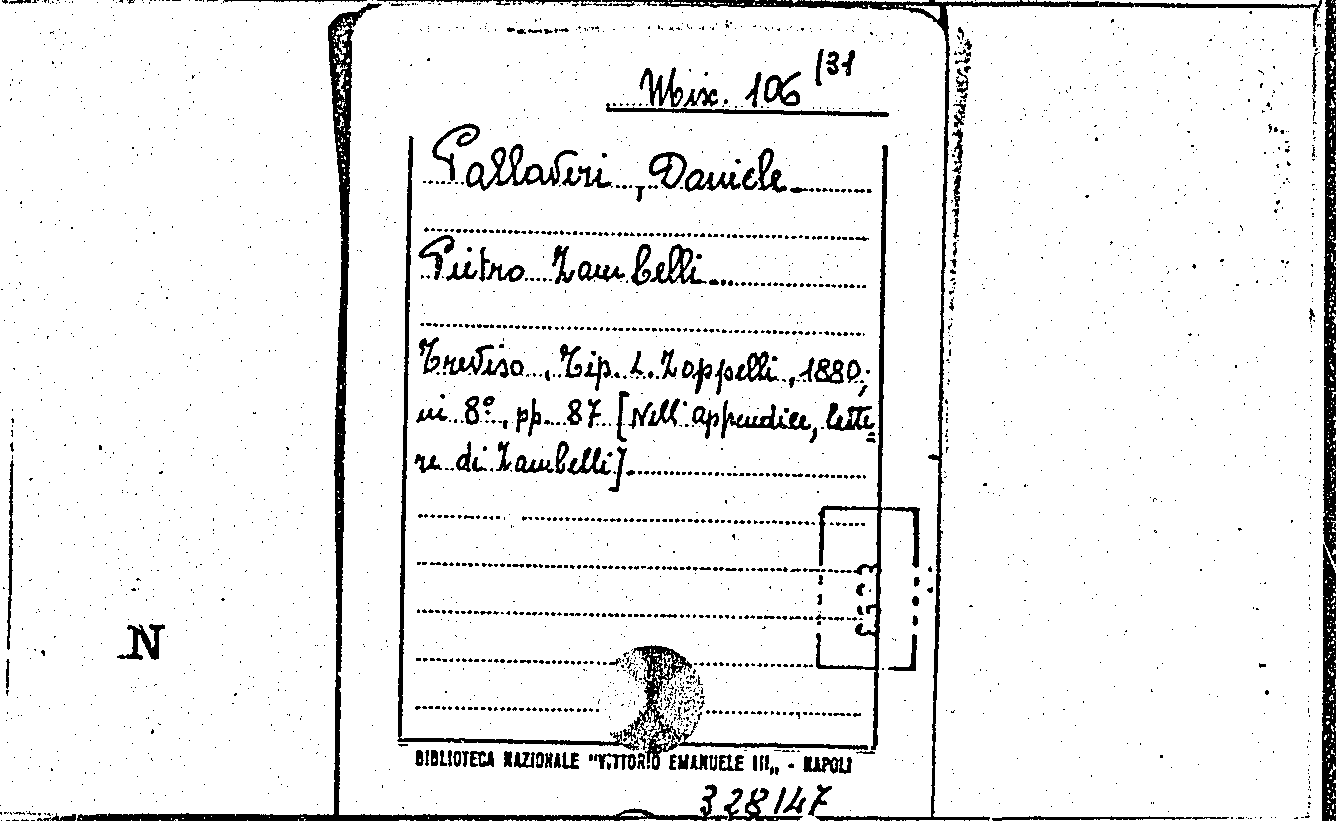 Misc. 106 /31
Pallaveri, Daniele
Pietro Zambelli
Treviso, Tip. L. Zoppelli, 1880;
in 8º, pp. 87 [Nell'appendice, lette=
re di Zambelli].
N
BIBLIOTECA NAZIONALE "VITTORIO EMANUELE III„ - NAPOLI
328147